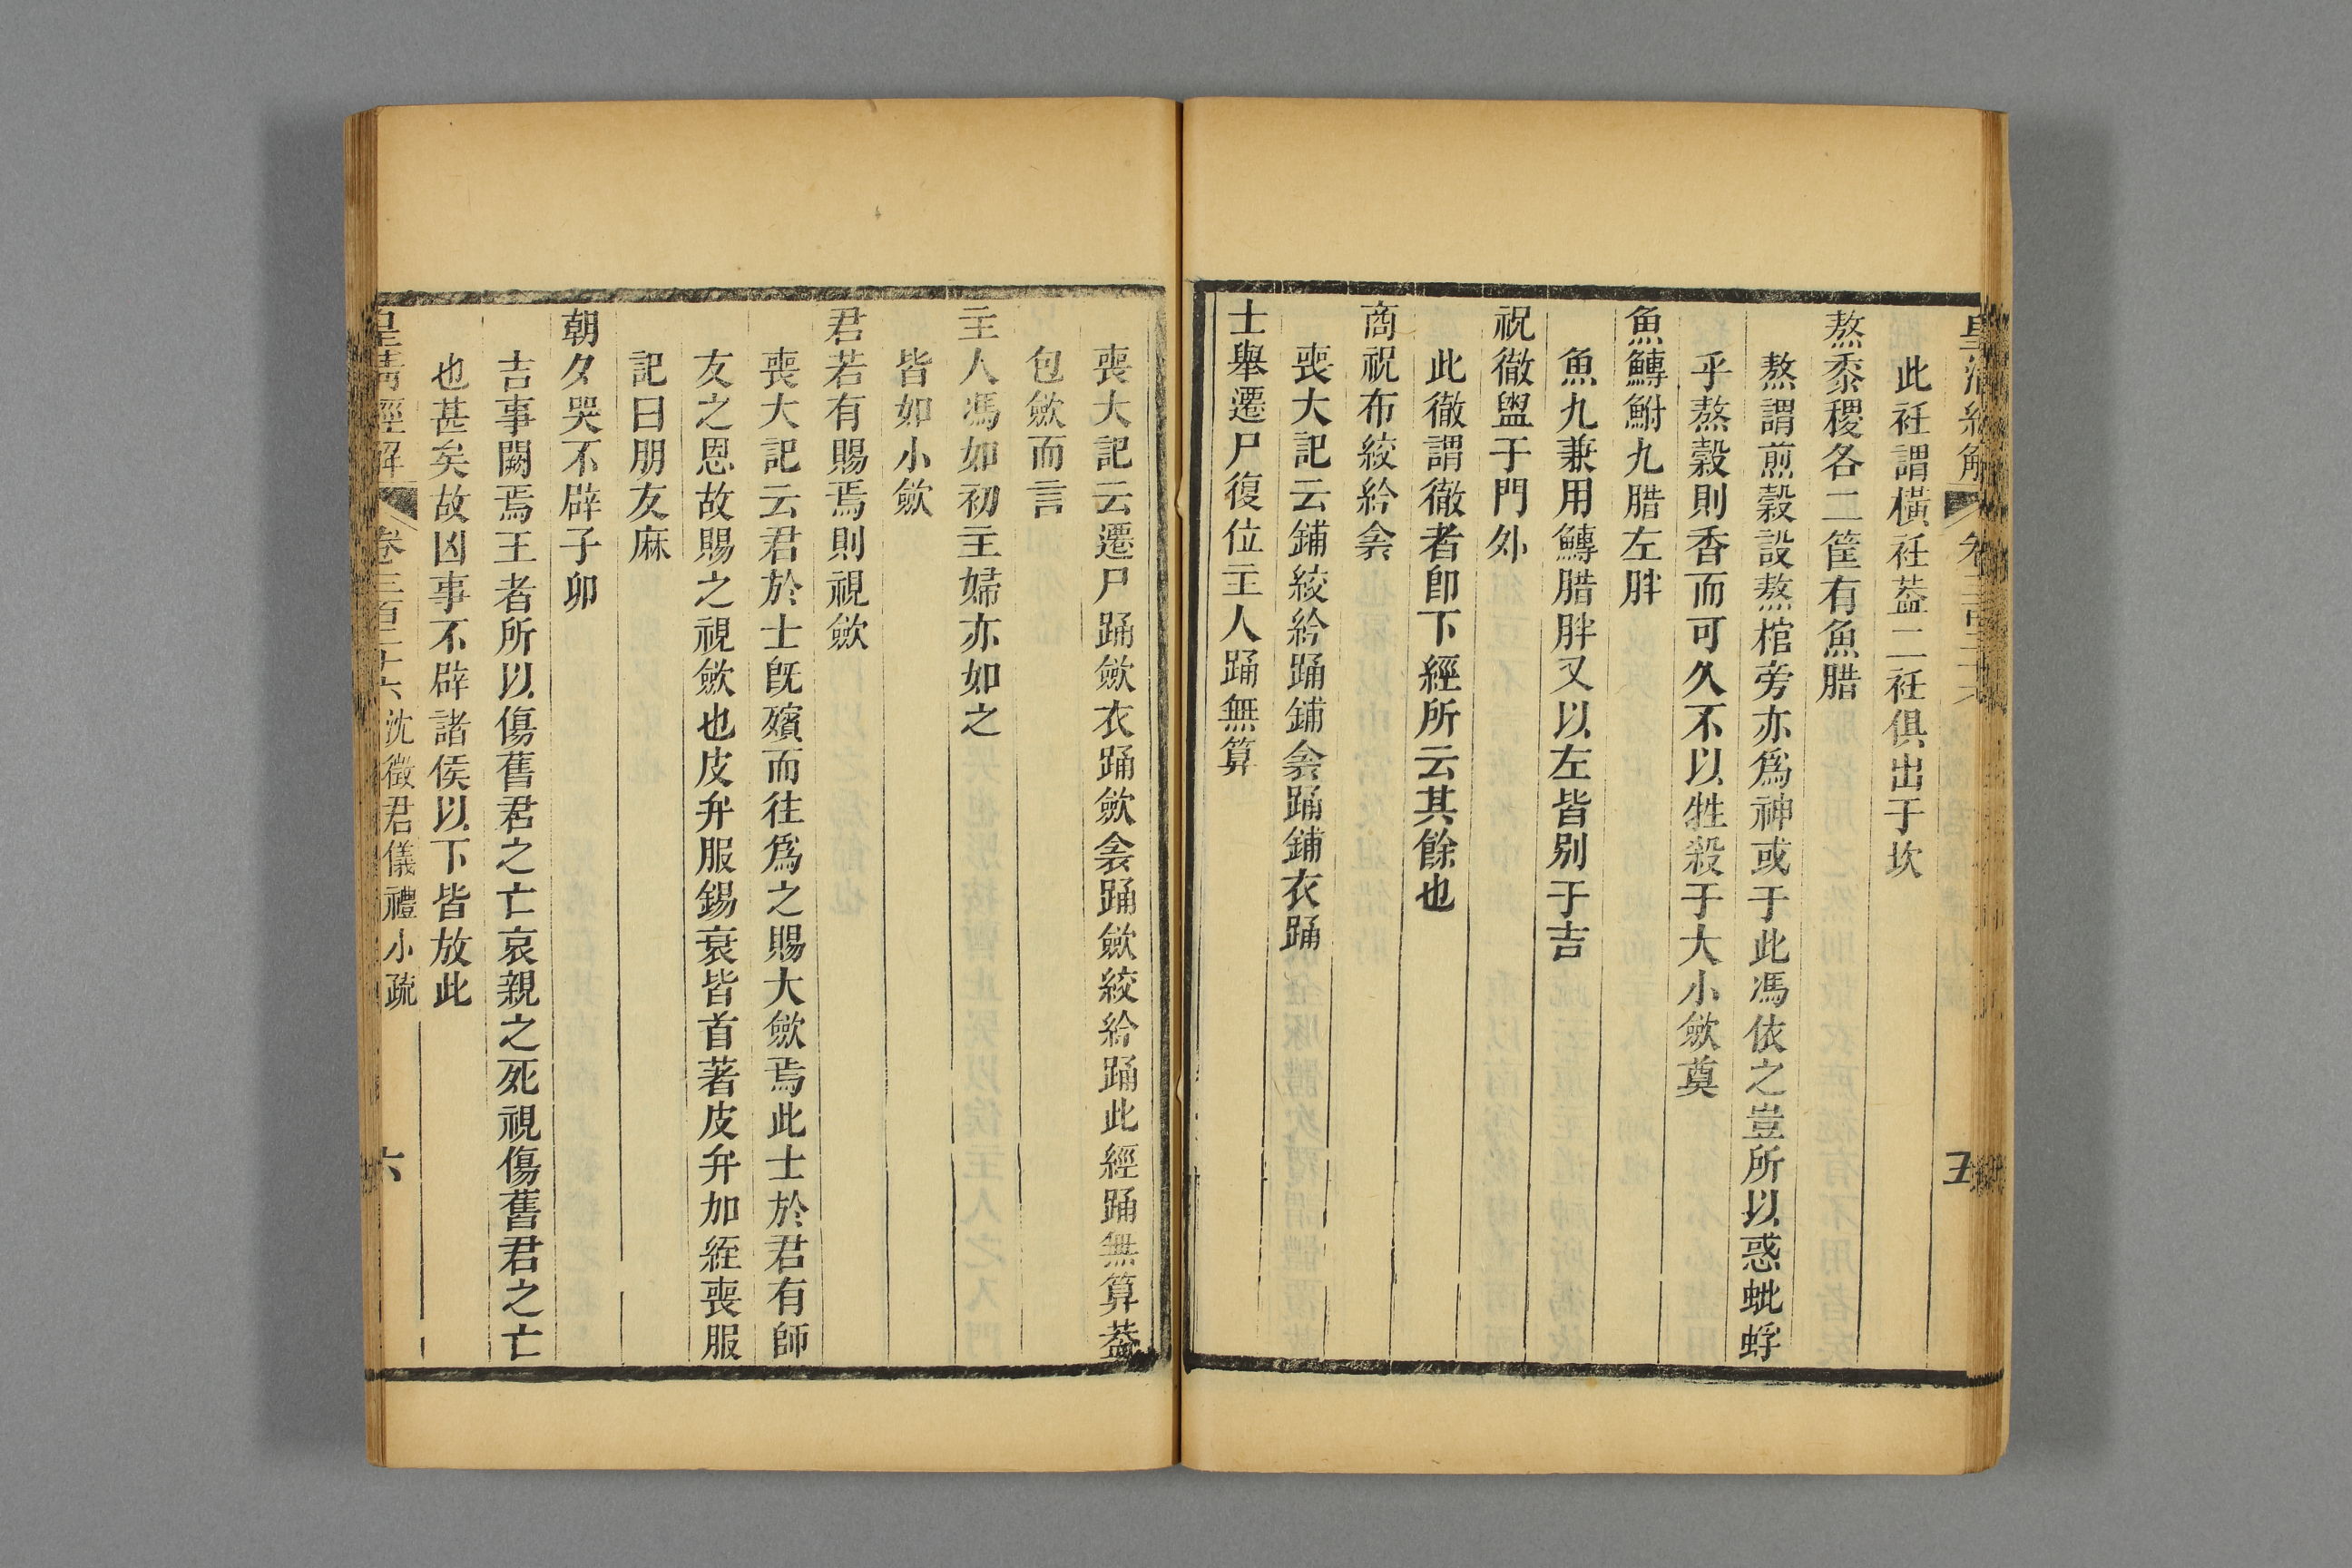 此衽謂橫衽葢二衽俱出于坎
熬黍稷各二筐有魚腊
熬謂煎穀設熬棺旁亦爲神或于此馮依之豈所以惑蚍蜉
乎熬穀則香而可久不以牲殺于大小斂奠
魚鱄鮒九腊左胖
魚九兼用鱄腊胖又以左皆别于吉
祝徹盥于門外
此徹謂徹者卽下經所云其餘也
商祝布絞紟衾
喪大記云鋪絞紟踊鋪衾踊鋪衣踊
士舉遷尸復位主人踊無算
五
喪大記云遷尸踊斂衣踊斂衾踊斂絞紟踊此經踊無算葢
包斂而言
主人馮如初主婦亦如之
皆如小斂
君若有賜焉則視斂
喪大記云君於士旣殯而往爲之賜大斂焉此士於君有師
友之恩故賜之視斂也皮弁服錫衰皆首著皮弁加絰喪服
記曰朋友麻
朝夕哭不辟子卯
吉事闕焉王者所以傷舊君之亡哀親之死視傷舊君之亡
也甚矣故凶事不辟諸侯以下皆放此
皇清經解 卷三百二十六 沈徵君儀禮小疏 六